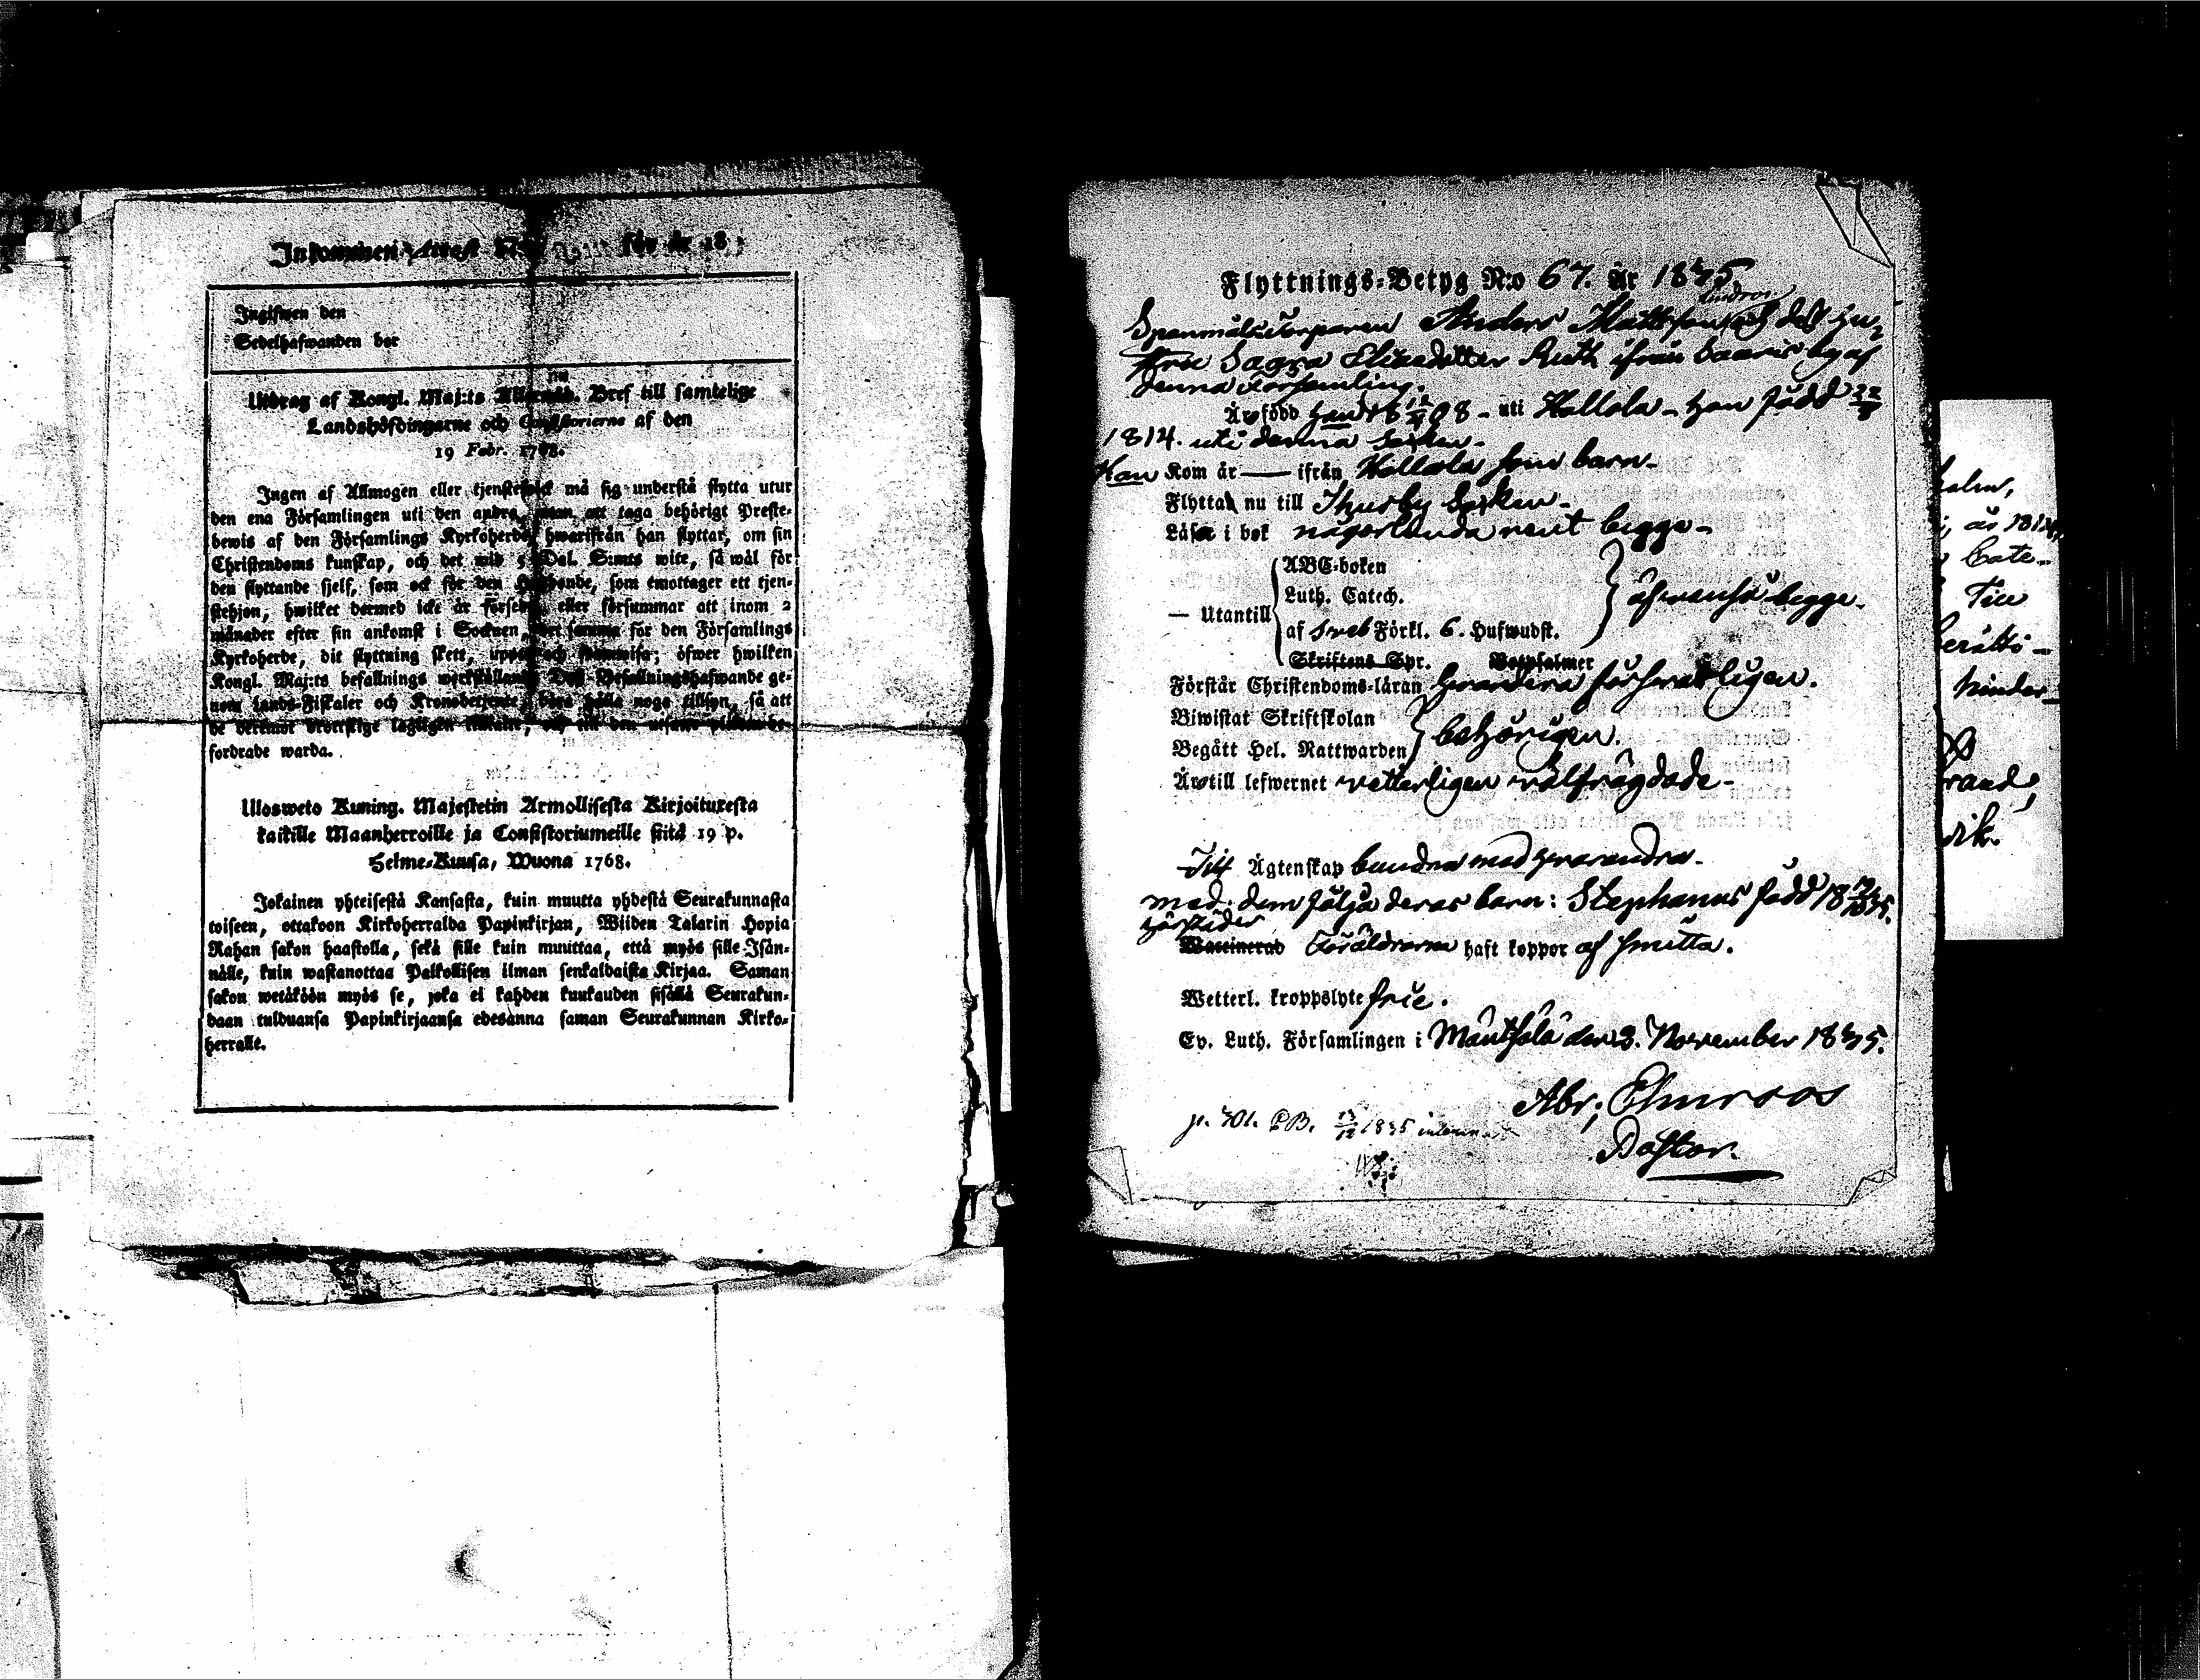 Inkommen Attest N:o för år 18
Ingifwen den
Sedelhafwanden bor
Utdrag af Kongl. Maj:ts Allernåd. Bref till samtelige
Landshöfdingarne och Consistorierne af den
19 Febr. 1768.
Ingen af Allmogen eller tjenstefolck må sig understå flytta utur
den ena Församlingen uti den andra, utan att taga behörigt Preste-
bewis af den Församlings Kyrkoherde, hwarifrån han flyttar, om sin
Christendoms kunskap, och det wid 5 Dal. S:mts wite, så wäl för
den flyttande sjelf, som ock för den Husbonde, som emottager ett tjen-
stehjon, hwilket dermed icke är försedt, eller försummar att inom 2
månader efter sin ankomst i Socknen, det samma för den Församlings
Kyrkoherde, dit flyttning skett, uppte och framwisa; öfwer hwilken
Kongl. Maj:ts befallnings werkställande Dess Befallningshafwande ge-
nom Lands-Fiskaler och Kronobetjente, böra hålla noga tillsyn, så att
de deremot brottslige lagligen tilltalte, och till den utsatte plikten be-
fordrade warda.
Ulosweto Kuning. Majestetin Armollisesta Kirjoituxesta
kaikille Maanherroille ja Consistoriumeille siitä 19 p.
Helme-Kuusa, Wuona 1768.
Jokainen yhteisestä Kansasta, kuin muutta yhdestä Seurakunnasta
toiseen, ottakoon Kirkoherralda Papinkirjan, Wiiden Talarin Hopia
Rahan sakon haastolla, sekä sille kuin muuttaa, että myös sille Isän-
nälle, kuin wastanottaa Palkollisen ilman senkaldaista Kirjaa. Saman
sakon wetäköön myös se, joka ei kahden kuukauden sisällä Seurakun-
daan tulduansa Papinkirjaansa edesanna saman Seurakunnan Kirko-
herralle.
Flyttnings-Betyg N:o 67. År 1835
Spanmåls Torparen Anders Mattsson Lindroos och dess hu-
stru Elisadotter Ruth ifrån Saaris by af
denna Församling.
Äro född Han 18 08 - uti Hollola - Hon född 22
1814. uti denna Socken -
Han Kom år — ifrån Hollola som barn -
Flyttar nu till Thusby Socken -
Läsa i bok någorlunda rent begge -
— Utantill
ABC-boken
Luth. Catech.
af Sveb Förkl. 6. Hufwudst.
Skriftens Spr. Botpsalmer
äfwenså begge.
Förstår Christendoms-läran hwardera försvarligen.
Biwistat Skriftskolan
Begått Hel. Nattwarden
behörigen.
Äro till lefwernet vetterligen välfrägdade -
Till Ägtenskap bundna med hvarandra.
med dem följa deras barn: Stephanus född 18 35.
härstädes
Waccinerad Föräldrarna haft koppor af smitta.
Wetterl. kroppslyte frie.
Ev. Luth. Församlingen i Mäntsälä den 3. November 1835.
Abr. Elmroos
Pastor.
p. 701. CB. 13/12 1835